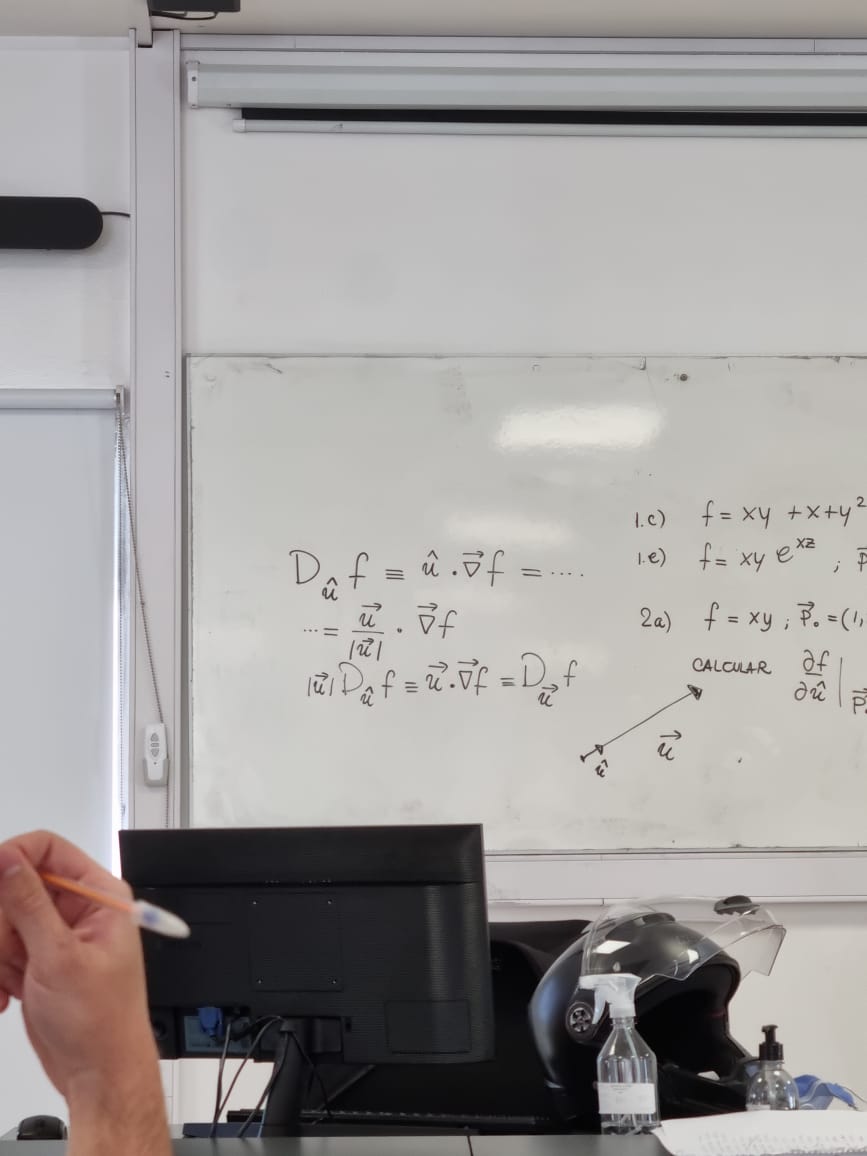 D_û f ≡ û · ∇⃗f = ....
... = u⃗/|u⃗| · ∇⃗f
|u⃗| D_û f ≡ u⃗ · ∇⃗f = D_u⃗ f
û
u⃗
1.c) f = xy + x + y²
1.e) f = xy e^xz ; P⃗
2a) f = xy ; P⃗₀ = (1,
CALCULAR ∂f/∂û |P⃗₀